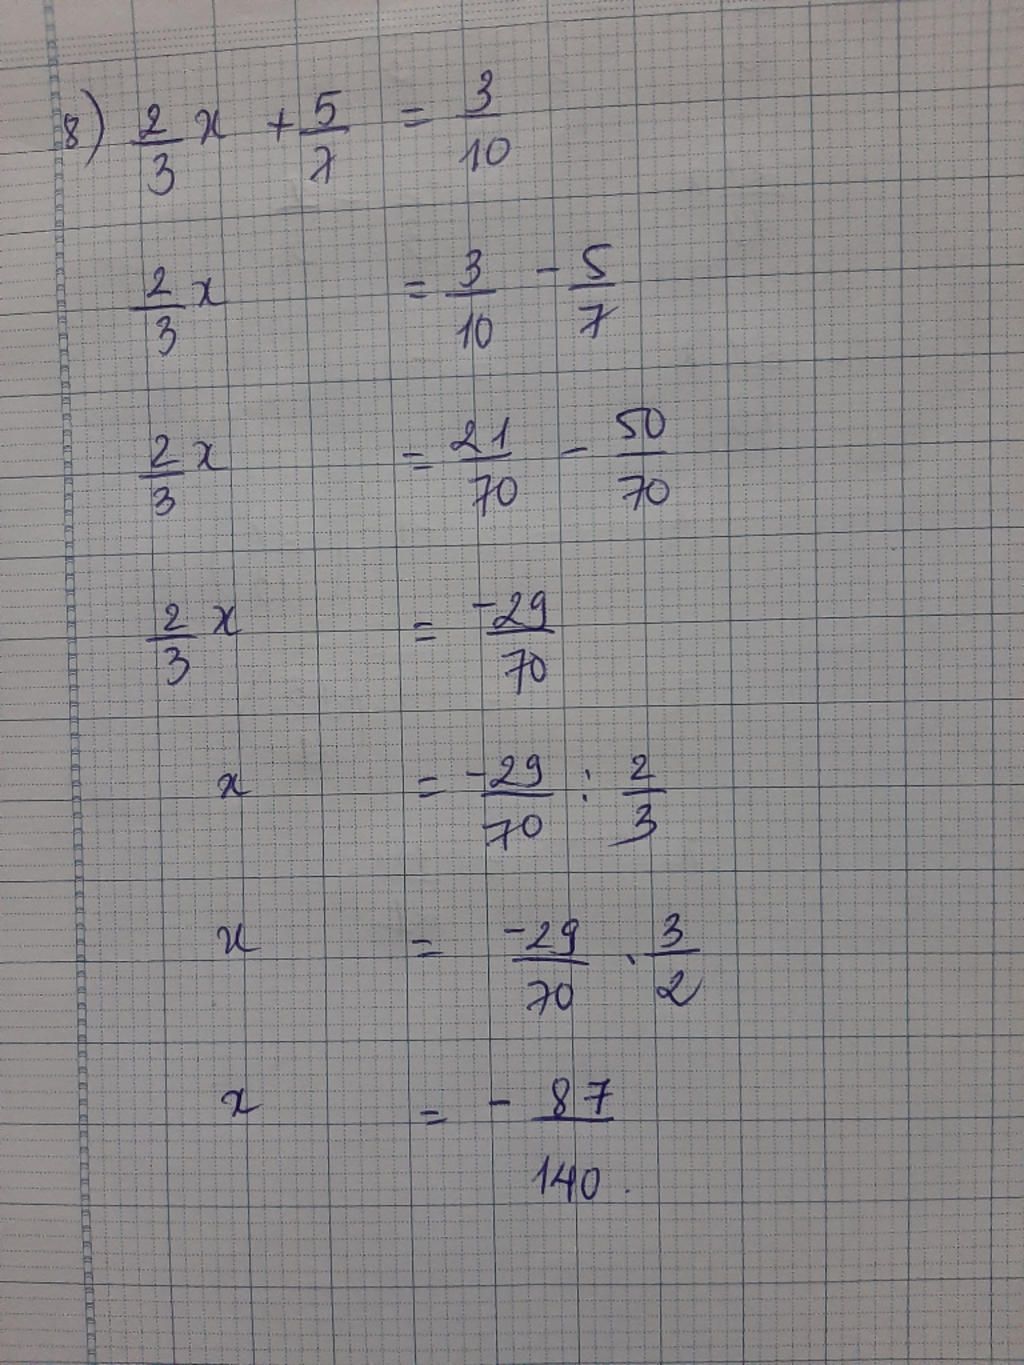 8) 2/3 x + 5/7 = 3/10
2/3 x = 3/10 - 5/7
2/3 x = 21/70 - 50/70
2/3 x = -29/70
x = -29/70 : 2/3
x = -29/70 . 3/2
x = - 87/140.